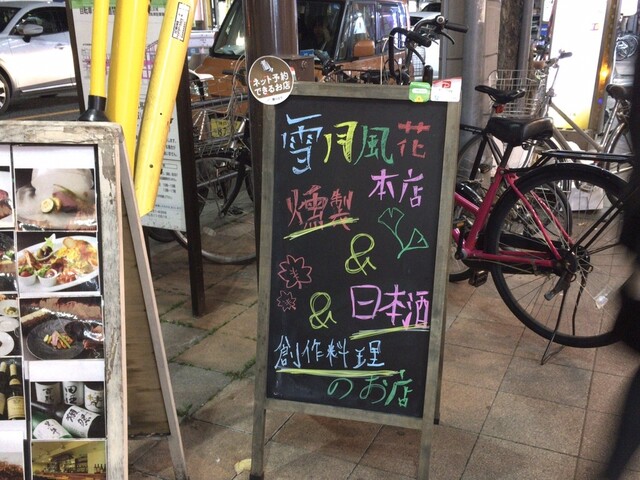 ネット予約
できるお店
雪月風花
本店
燻製
&
& 日本酒
創作料理
のお店